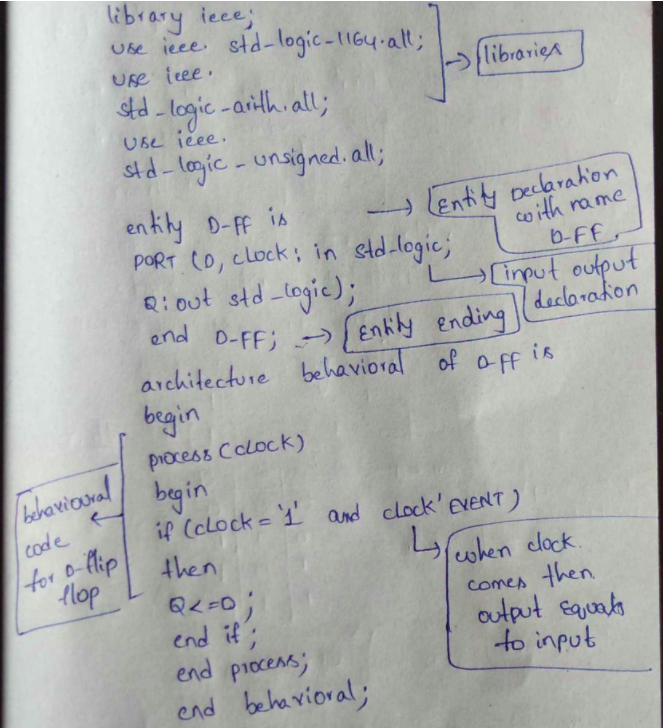 library ieee;
use ieee. std-logic-1164.all;
use ieee.
std-logic-arith.all;
use ieee.
std-logic-unsigned.all;
libraries
entity D-FF is
PORT (D, clock: in std-logic;
Q: out std-logic);
end D-FF;
Entity Declaration
with name
D-FF.
input output
declaration
Entity Ending
architecture behavioral of D-FF is
begin
process (clock)
begin
if (clock = '1' and clock'EVENT)
then
Q<=D;
end if;
end process;
end behavioral;
behavioural
code
for D-flip
flop
when clock.
comes then.
output Equals
to input